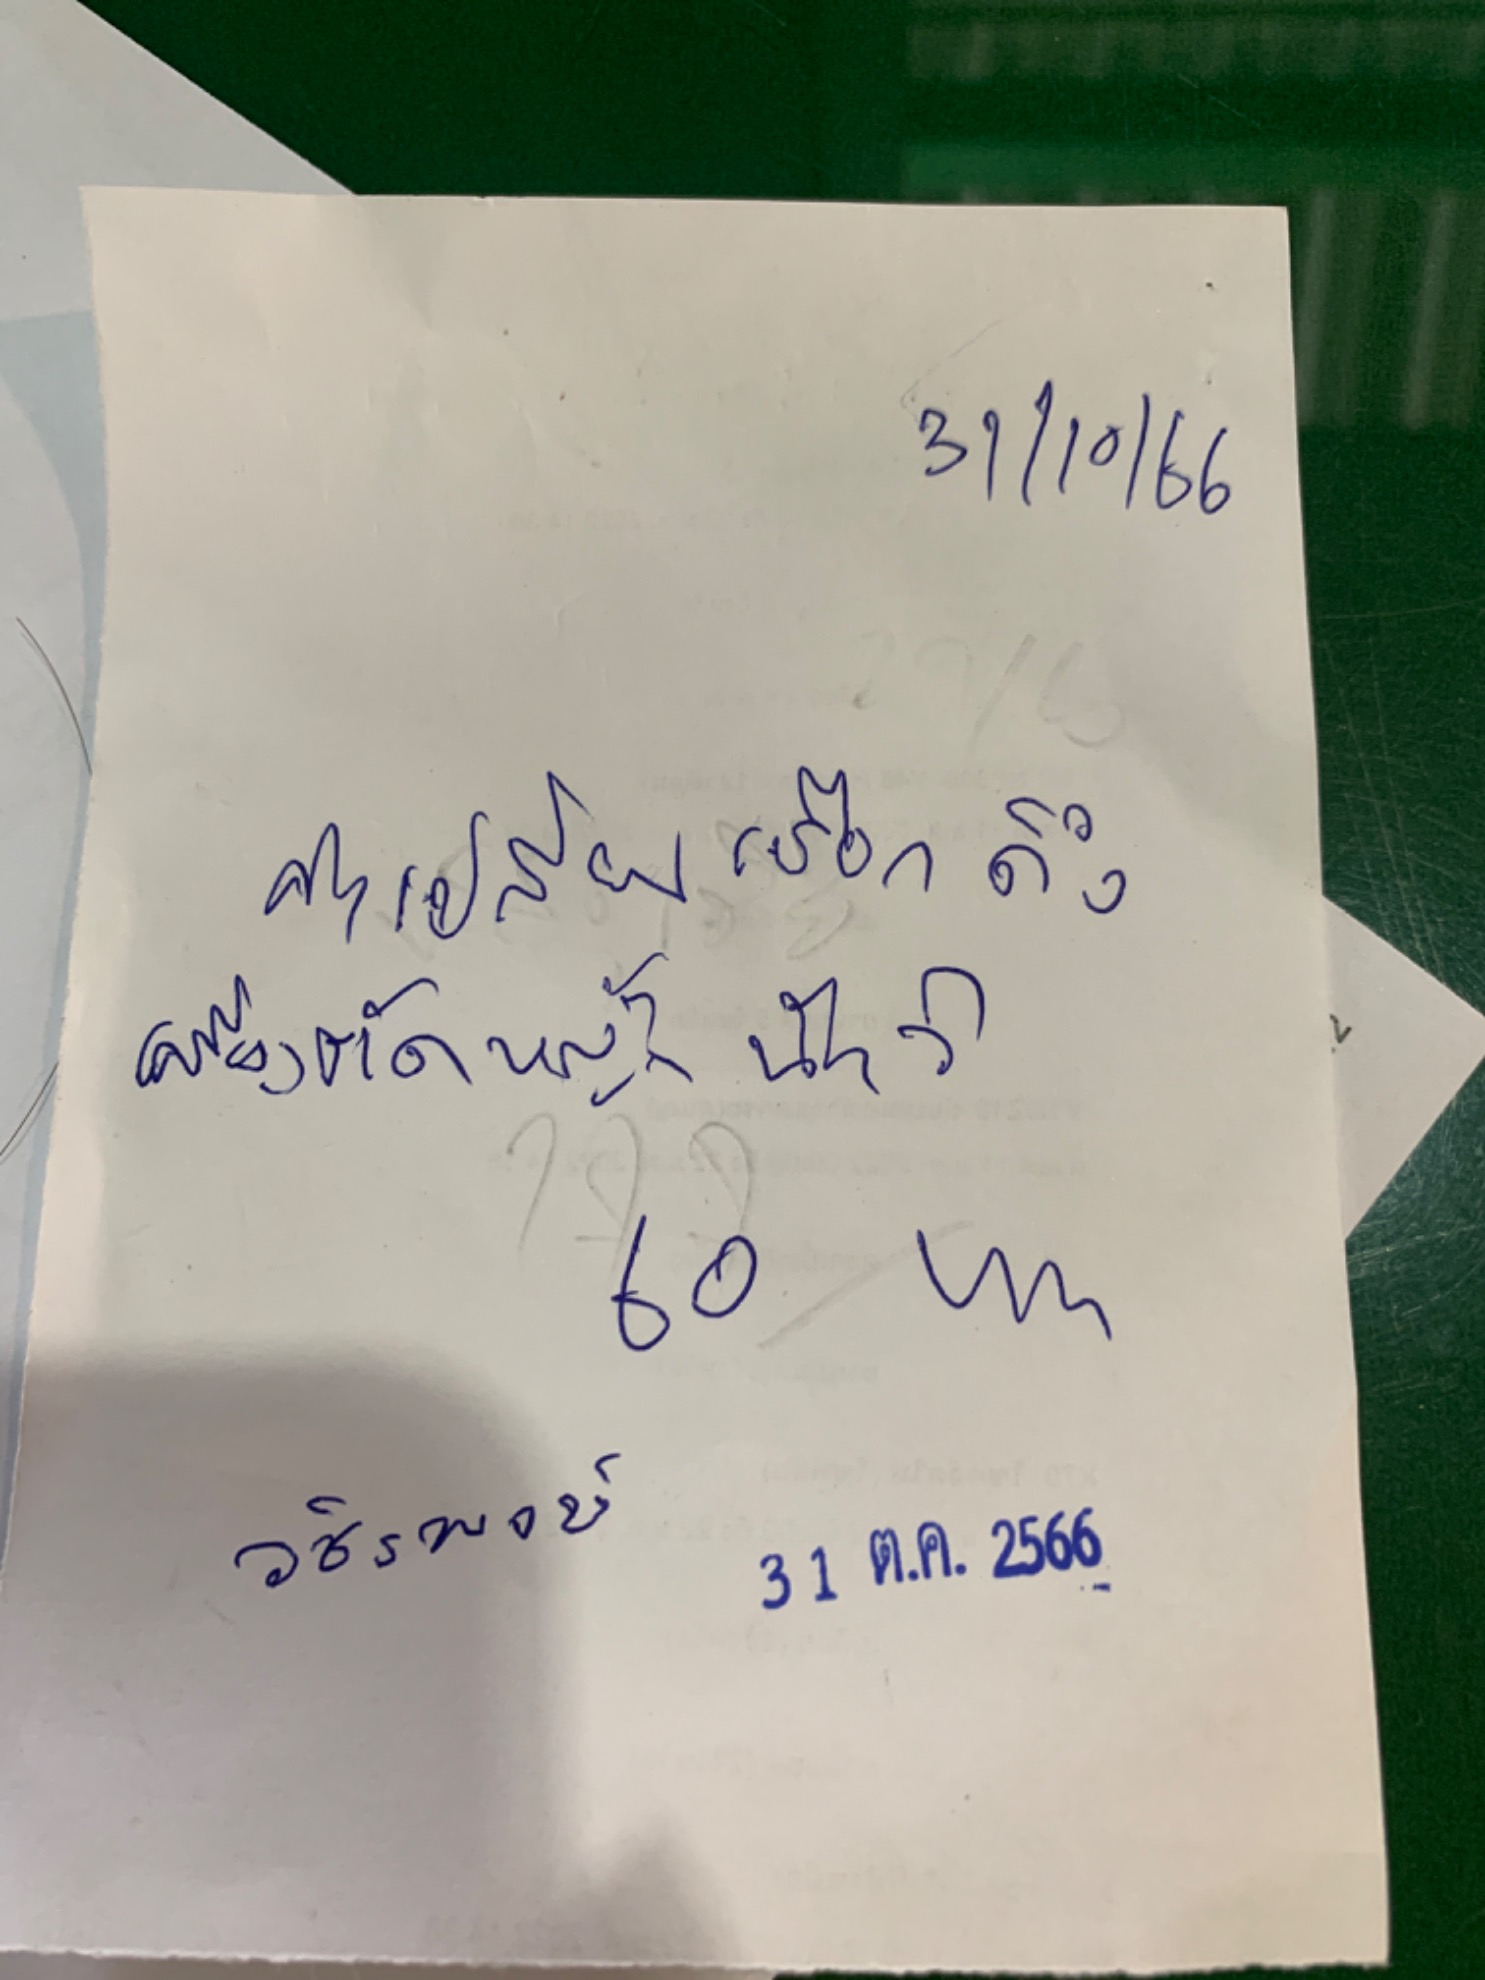 31/10/66
ค่าเปลี่ยนเชือกดึง
เครื่องตัดหญ้า
60 บาท
วชิรพงษ์
31 ต.ค. 2566